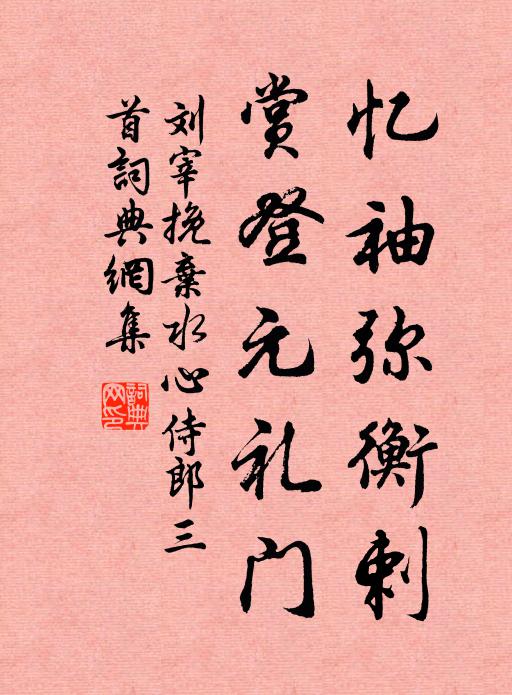 忆袖弥衡刺
赏登元礼门
刘宰挽棄水心侍郎三
首詞典網集
詞典網印